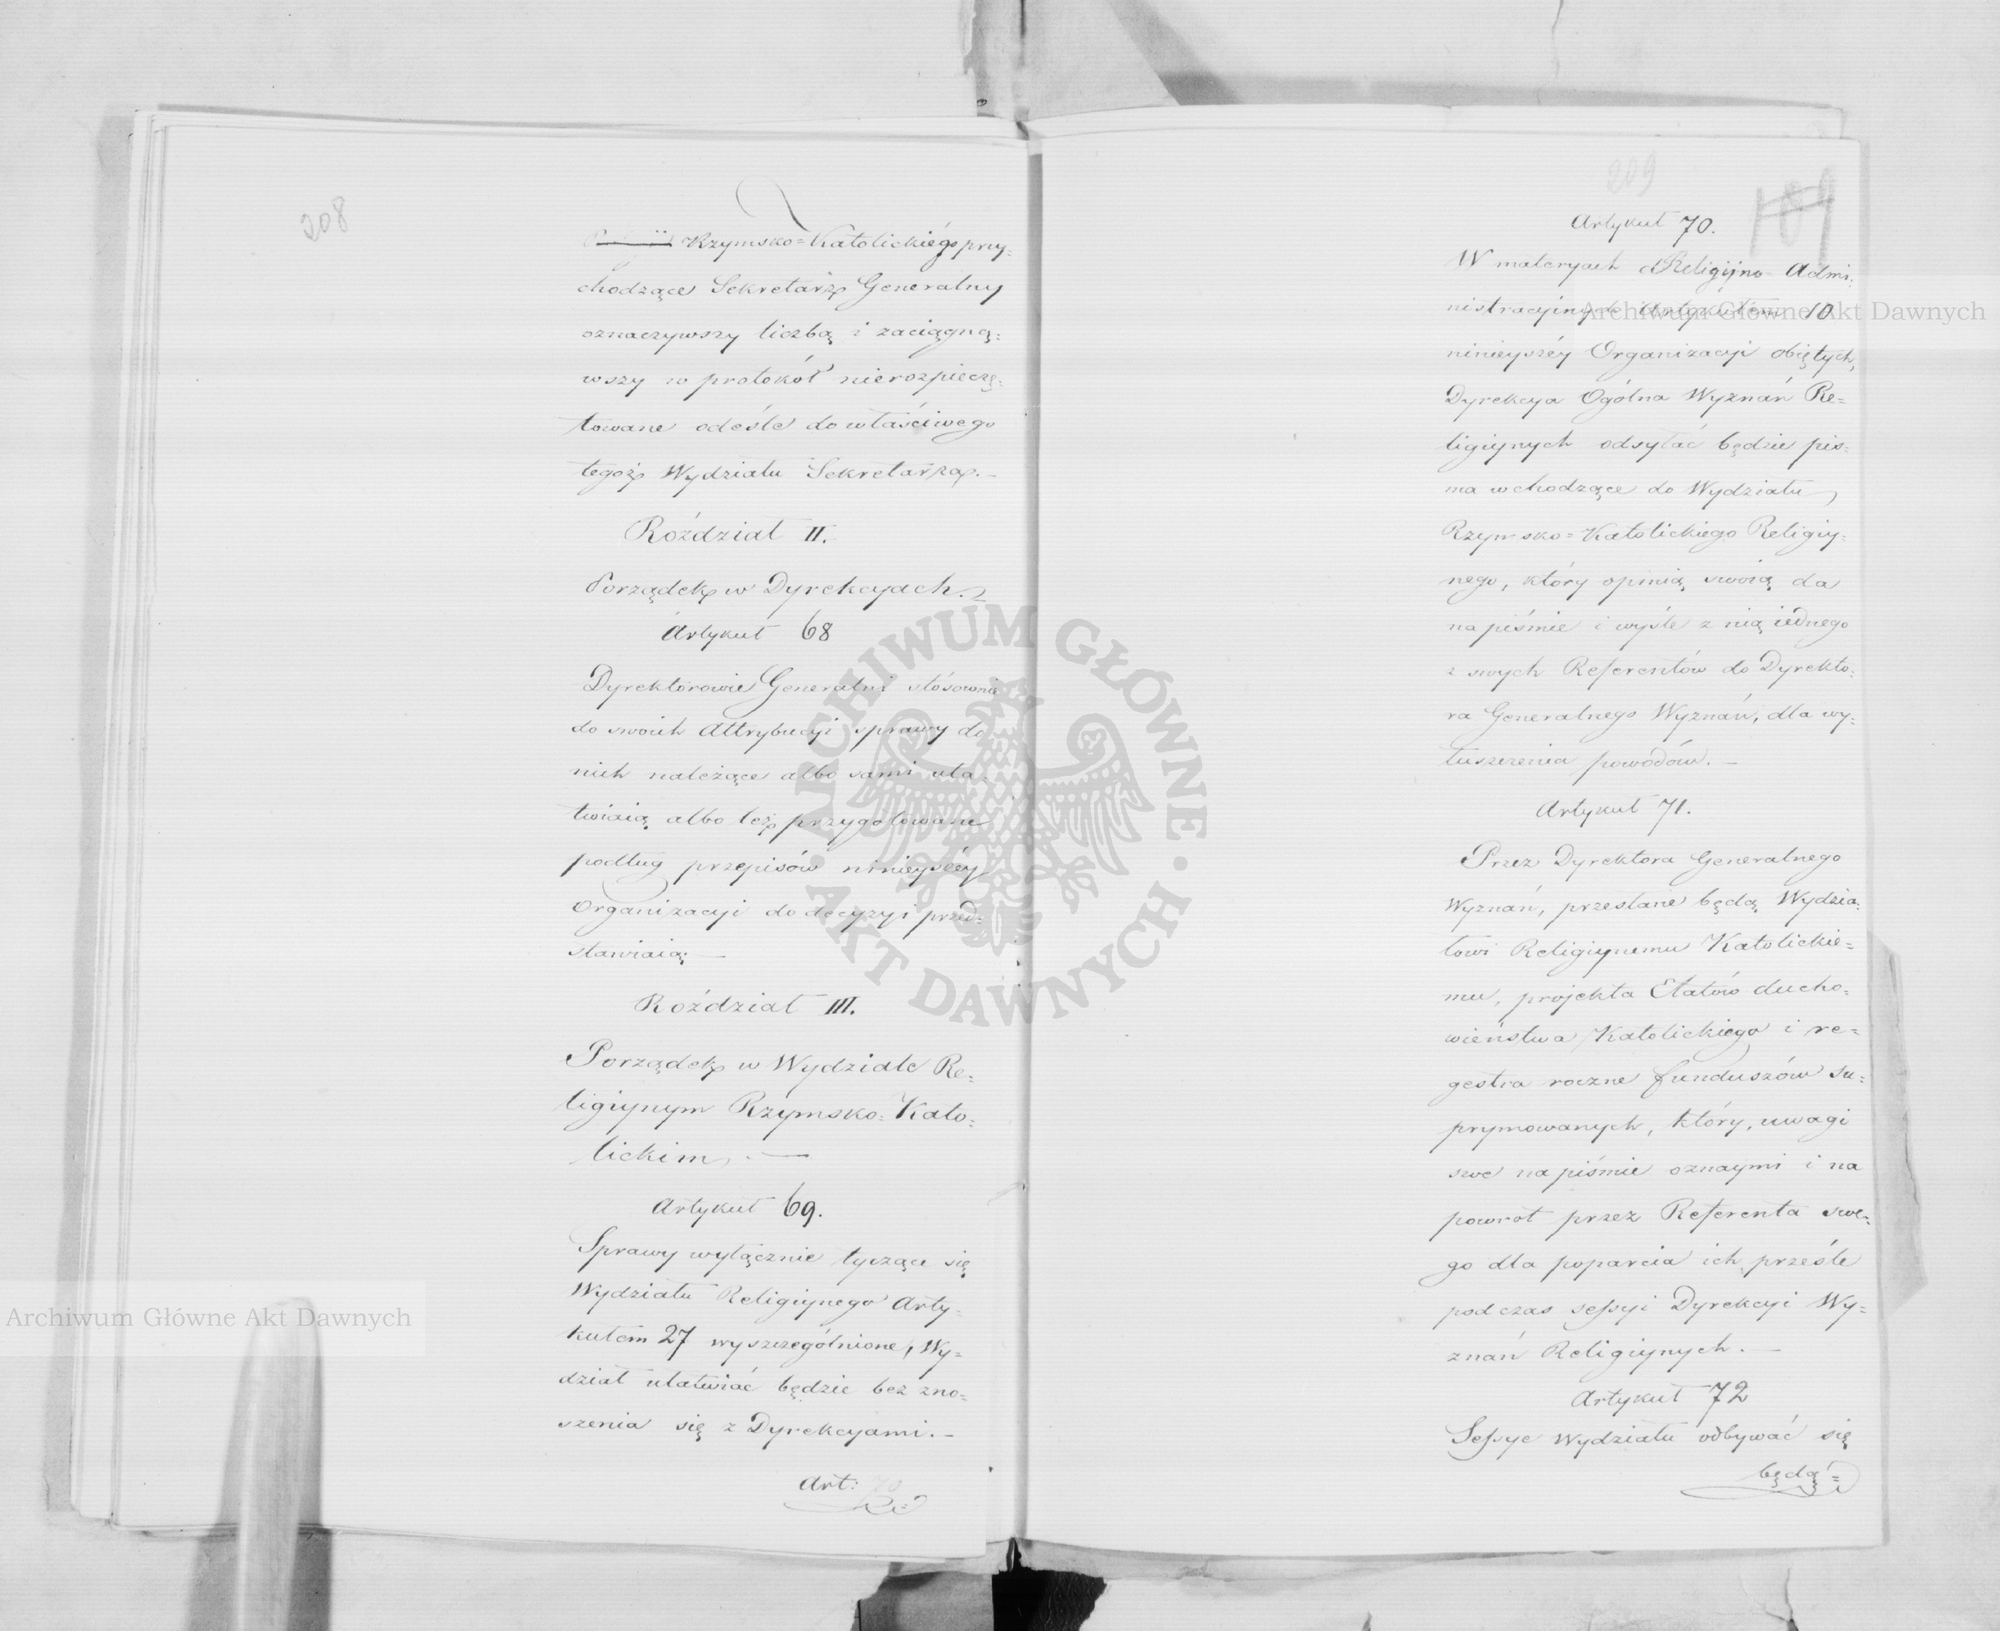 208
Rzymsko=Katolickiégo przy=
chodzące Sekretarz Generalny
oznaczywszy liczbą i zaciągną=
wszy w protokół nierozpieczę=
towane odeśle do właściwego
tegoż Wydziału Sekretarza.—
Roździał II.
Porządek w Dyrekcyach.
Artykuł 68
Dyrektorowie Generalni stósownie
do swoich Attrybucyi sprawy do
nich należące albo sami uła=
twiaią albo też przygotowane
podług przepisów ninieyszéy
Organizacyi do decyzyi przed=
stawiaią.—
Roździał III.
Porządek w Wydziale Re=
ligiynym Rzymsko=Kato=
lickim.—
Artykuł 69.
Sprawy wyłącznie tyczące się
Wydziału Religiynego Arty=
kułem 27 wyszczególnione, Wy=
dział ułatwiać będzie bez zno=
szenia się z Dyrekcyami.—
Art: 70
209
109
Artykuł 70.
W materyach Religijno Admi=
nistracyinych Artykułem 10
ninieyszéy Organizacyi obiętych,
Dyrekcya Ogólna Wyznań Re=
ligiynych odsyłać będzie pis=
ma wchodzące do Wydziału,
Rzymsko=Katolickiego Religiy=
nego, który opinią swoią da
na piśmie i wyśle z nią iednego
z swych Referentów do Dyrekto=
ra Generalnego Wyznań, dla wy=
łuszczenia powodów.—
Artykuł 71.
Przez Dyrektora Generalnego
Wyznań, przesłane będą Wydzia=
łowi Religiynemu Katolickie=
mu, projekta Etatów ducho=
wieństwa Katolickiego i re=
gestra roczne funduszów su=
prymowanych, który, uwagi
swe na piśmie oznaymi i na
powrót przez Referenta swe=
go dla poparcia ich prześle
podczas sessyi Dyrekcyi Wy=
znań Religiynych.—
Artykuł 72
Sessye Wydziału odbywać się
będą=
ARCHIWUM GŁÓWNE · AKT DAWNYCH ·
Archiwum Główne Akt Dawnych
Archiwum Główne Akt Dawnych